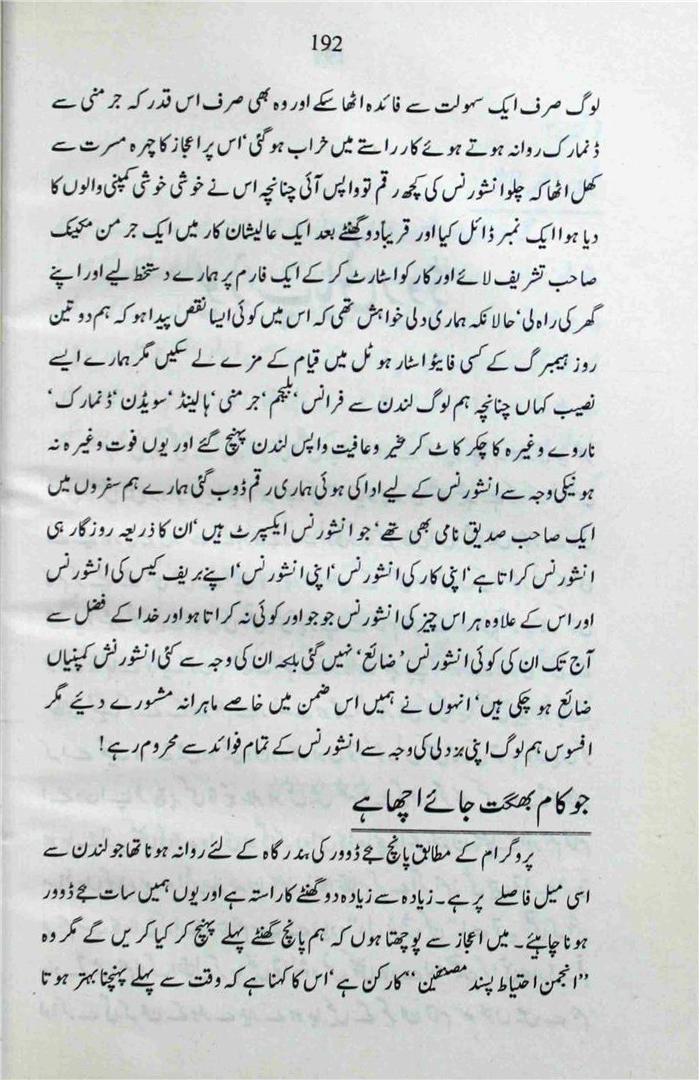 192
لوگ صرف ایک سہولت سے فائدہ اٹھا سکے اور وہ بھی صرف اس قدر کہ جرمنی سے
ڈنمارک روانہ ہوتے ہوئے کار راستے میں خراب ہو گئی‘ اس پر اعجاز کا چہرہ مسرت سے
کھل اٹھا کہ چلو انشورنس کی کچھ رقم تو واپس آئی چنانچہ اس نے خوشی خوشی کمپنی والوں کا
دیا ہوا ایک نمبر ڈائل کیا اور قریباً دو گھنٹے بعد ایک عالیشان کار میں ایک جرمن مکینک
صاحب تشریف لائے اور کار کو اسٹارٹ کر کے ایک فارم پر ہمارے دستخط لیے اور اپنے
گھر کی راہ لی‘ حالانکہ ہماری دلی خواہش تھی کہ اس میں کوئی ایسا نقص پیدا ہو کہ ہم دو تین
روز ہیمبرگ کے کسی فائیو اسٹار ہوٹل میں قیام کے مزے لے سکیں مگر ہمارے ایسے
نصیب کہاں چنانچہ ہم لوگ لندن سے فرانس‘ بلجیم‘ جرمنی‘ ہالینڈ‘ سویڈن‘ ڈنمارک‘
ناروے وغیرہ کا چکر کاٹ کر خیر و عافیت واپس لندن پہنچ گئے اور یوں فوت وغیرہ نہ
ہونیکی وجہ سے انشورنس کے لیے ادا کی ہوئی ہماری رقم ڈوب گئی ہمارے ہم سفروں میں
ایک صاحب صدیق نامی بھی تھے‘ جو انشورنس ایکسپرٹ ہیں‘ ان کا ذریعہ روزگار ہی
انشورنس کراتا ہے‘ اپنی کار کی انشورنس‘ اپنی انشورنس‘ اپنے بریف کیس کی انشورنس
اور اس کے علاوہ ہر اس چیز کی انشورنس جو جو اور کوئی نہ کراتا ہو اور خدا کے فضل سے
آج تک ان کی کوئی انشورنس ’ضائع‘ نہیں گئی بلکہ ان کی وجہ سے کئی انشورنش کمپنیاں
ضائع ہو چکی ہیں‘ انہوں نے ہمیں اس ضمن میں خاصے ماہرانہ مشورے دیئے مگر
افسوس ہم لوگ اپنی بزدلی کی وجہ سے انشورنس کے تمام فوائد سے محروم رہے!
جو کام بھگت جائے اچھا ہے
پروگرام کے مطابق پانچ بجے ڈوور کی بندرگاہ کے لئے روانہ ہونا تھا جو لندن سے
اسی میل فاصلے پر ہے۔ زیادہ سے زیادہ دو گھنٹے کا راستہ ہے اور یوں ہمیں سات بجے ڈوور
ہونا چاہیئے۔ میں اعجاز سے پوچھتا ہوں کہ ہم پانچ گھنٹے پہلے پہنچ کر کیا کریں گے مگر وہ
”انجمن احتیاط پسند مصنفین“ کا رکن ہے‘ اس کا کہنا ہے کہ وقت سے پہلے پہنچنا بہتر ہوتا